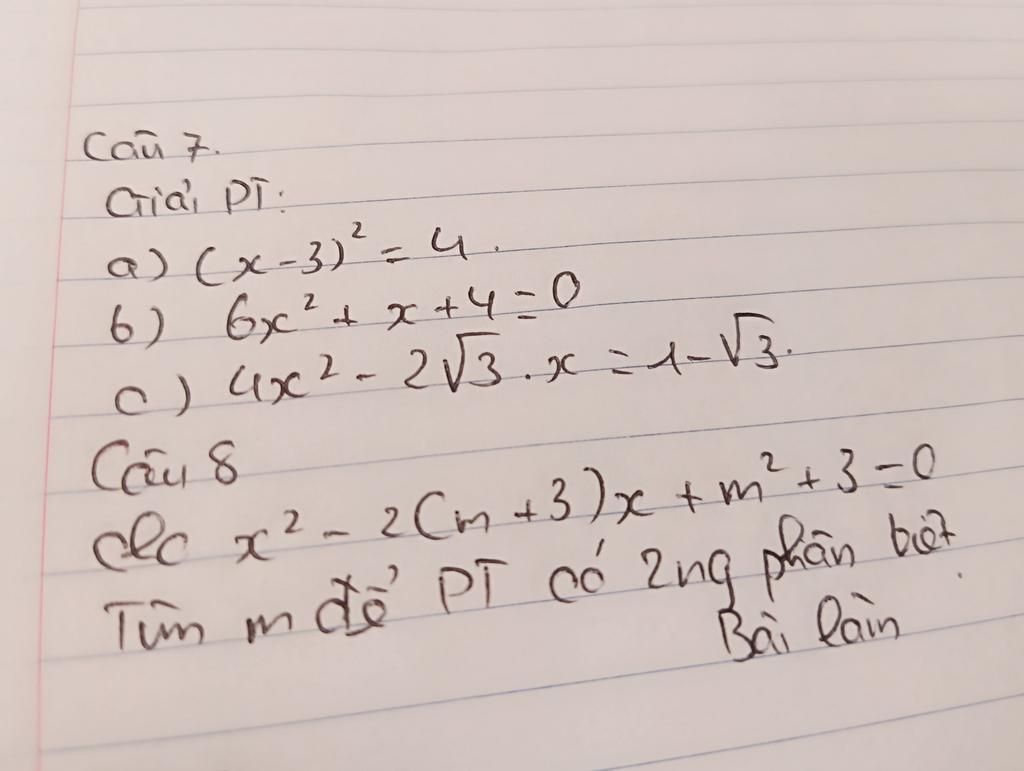 Câu 7.
Giải PT:
a) (x-3)² = 4.
b) 6x² + x + 4 = 0
c) 4x² - 2√3 . x = 1 - √3.
Câu 8
x² - 2(m + 3)x + m² + 3 = 0
Tìm m để PT có 2ng phân biệt.
Bài làm